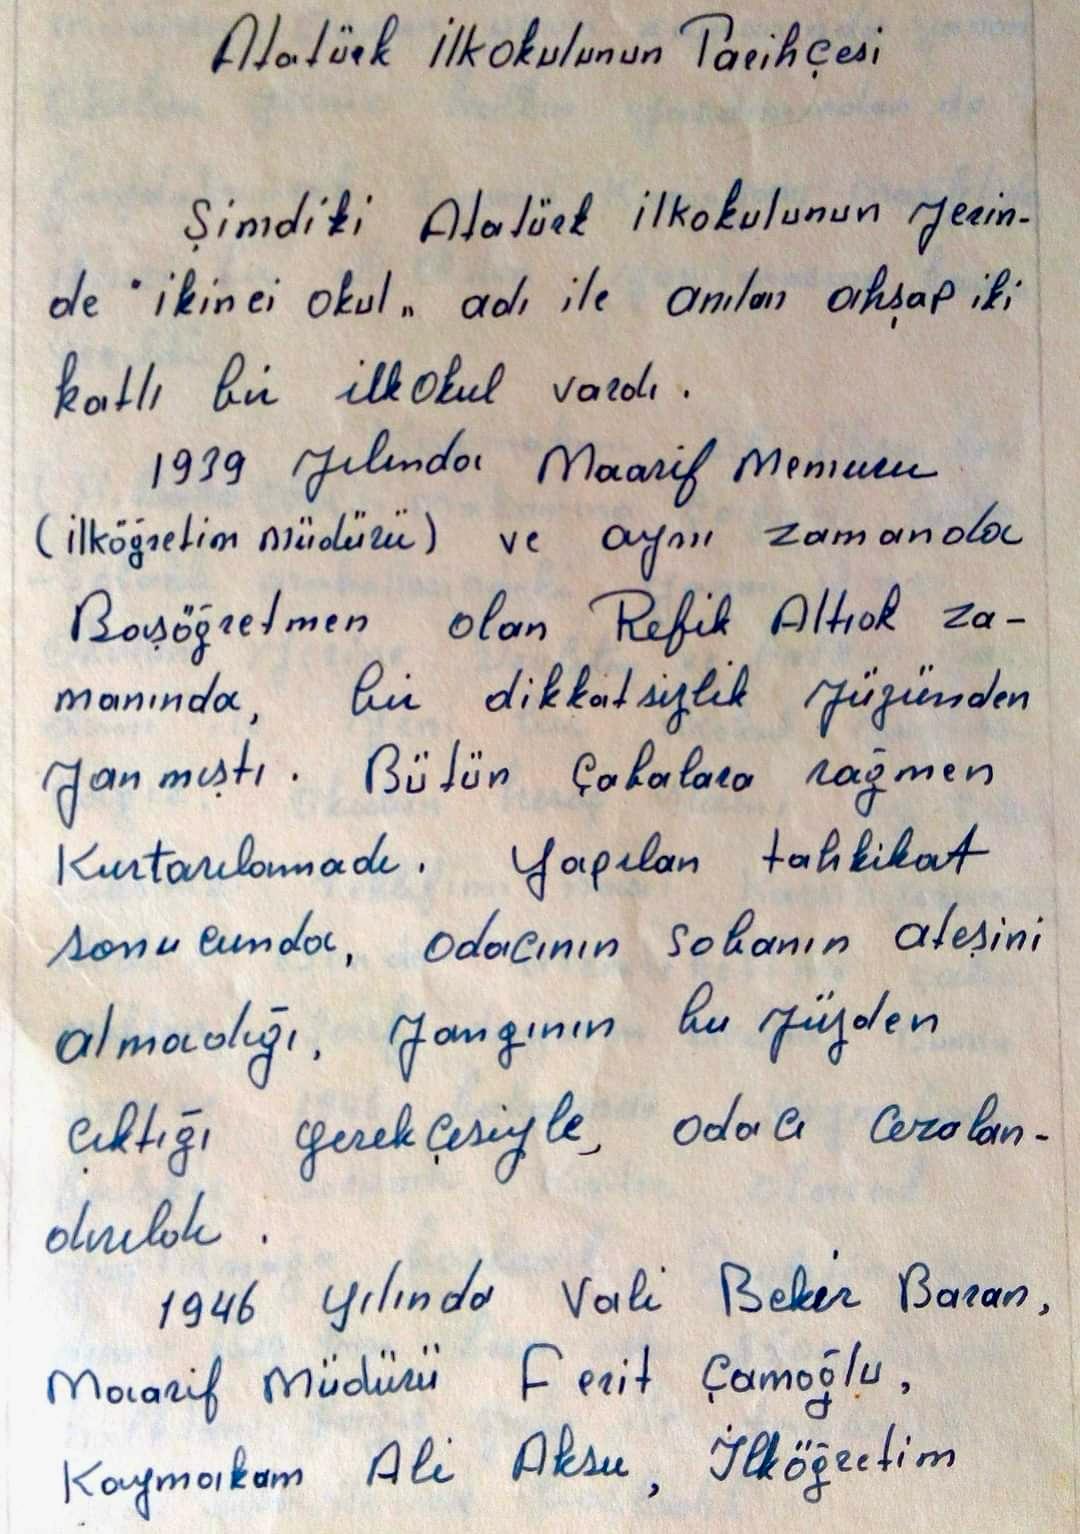 Atatürk İlkokulunun Tarihçesi
Şimdiki Atatürk ilkokulunun yerin-
de "ikinci okul„ adı ile anılan ahşap iki
katlı bir ilkokul vardı.
1939 yılında Maarif Memuru
(ilköğretim Müdürü) ve aynı zamanda
Başöğretmen olan Refik Altıok za-
manında, bir dikkatsizlik yüzünden
yanmıştı. Bütün çabalara rağmen
Kurtarılamadı. Yapılan tahkikat
sonucunda, odacının sobanın ateşini
almadığı, yangının bu yüzden
çıktığı gerekçesiyle, odacı cezalan-
dırıldı.
1946 yılında Vali Bekir Baran,
Maarif Müdürü Ferit Çamoğlu,
Kaymakam Ali Aksu, İlköğretim